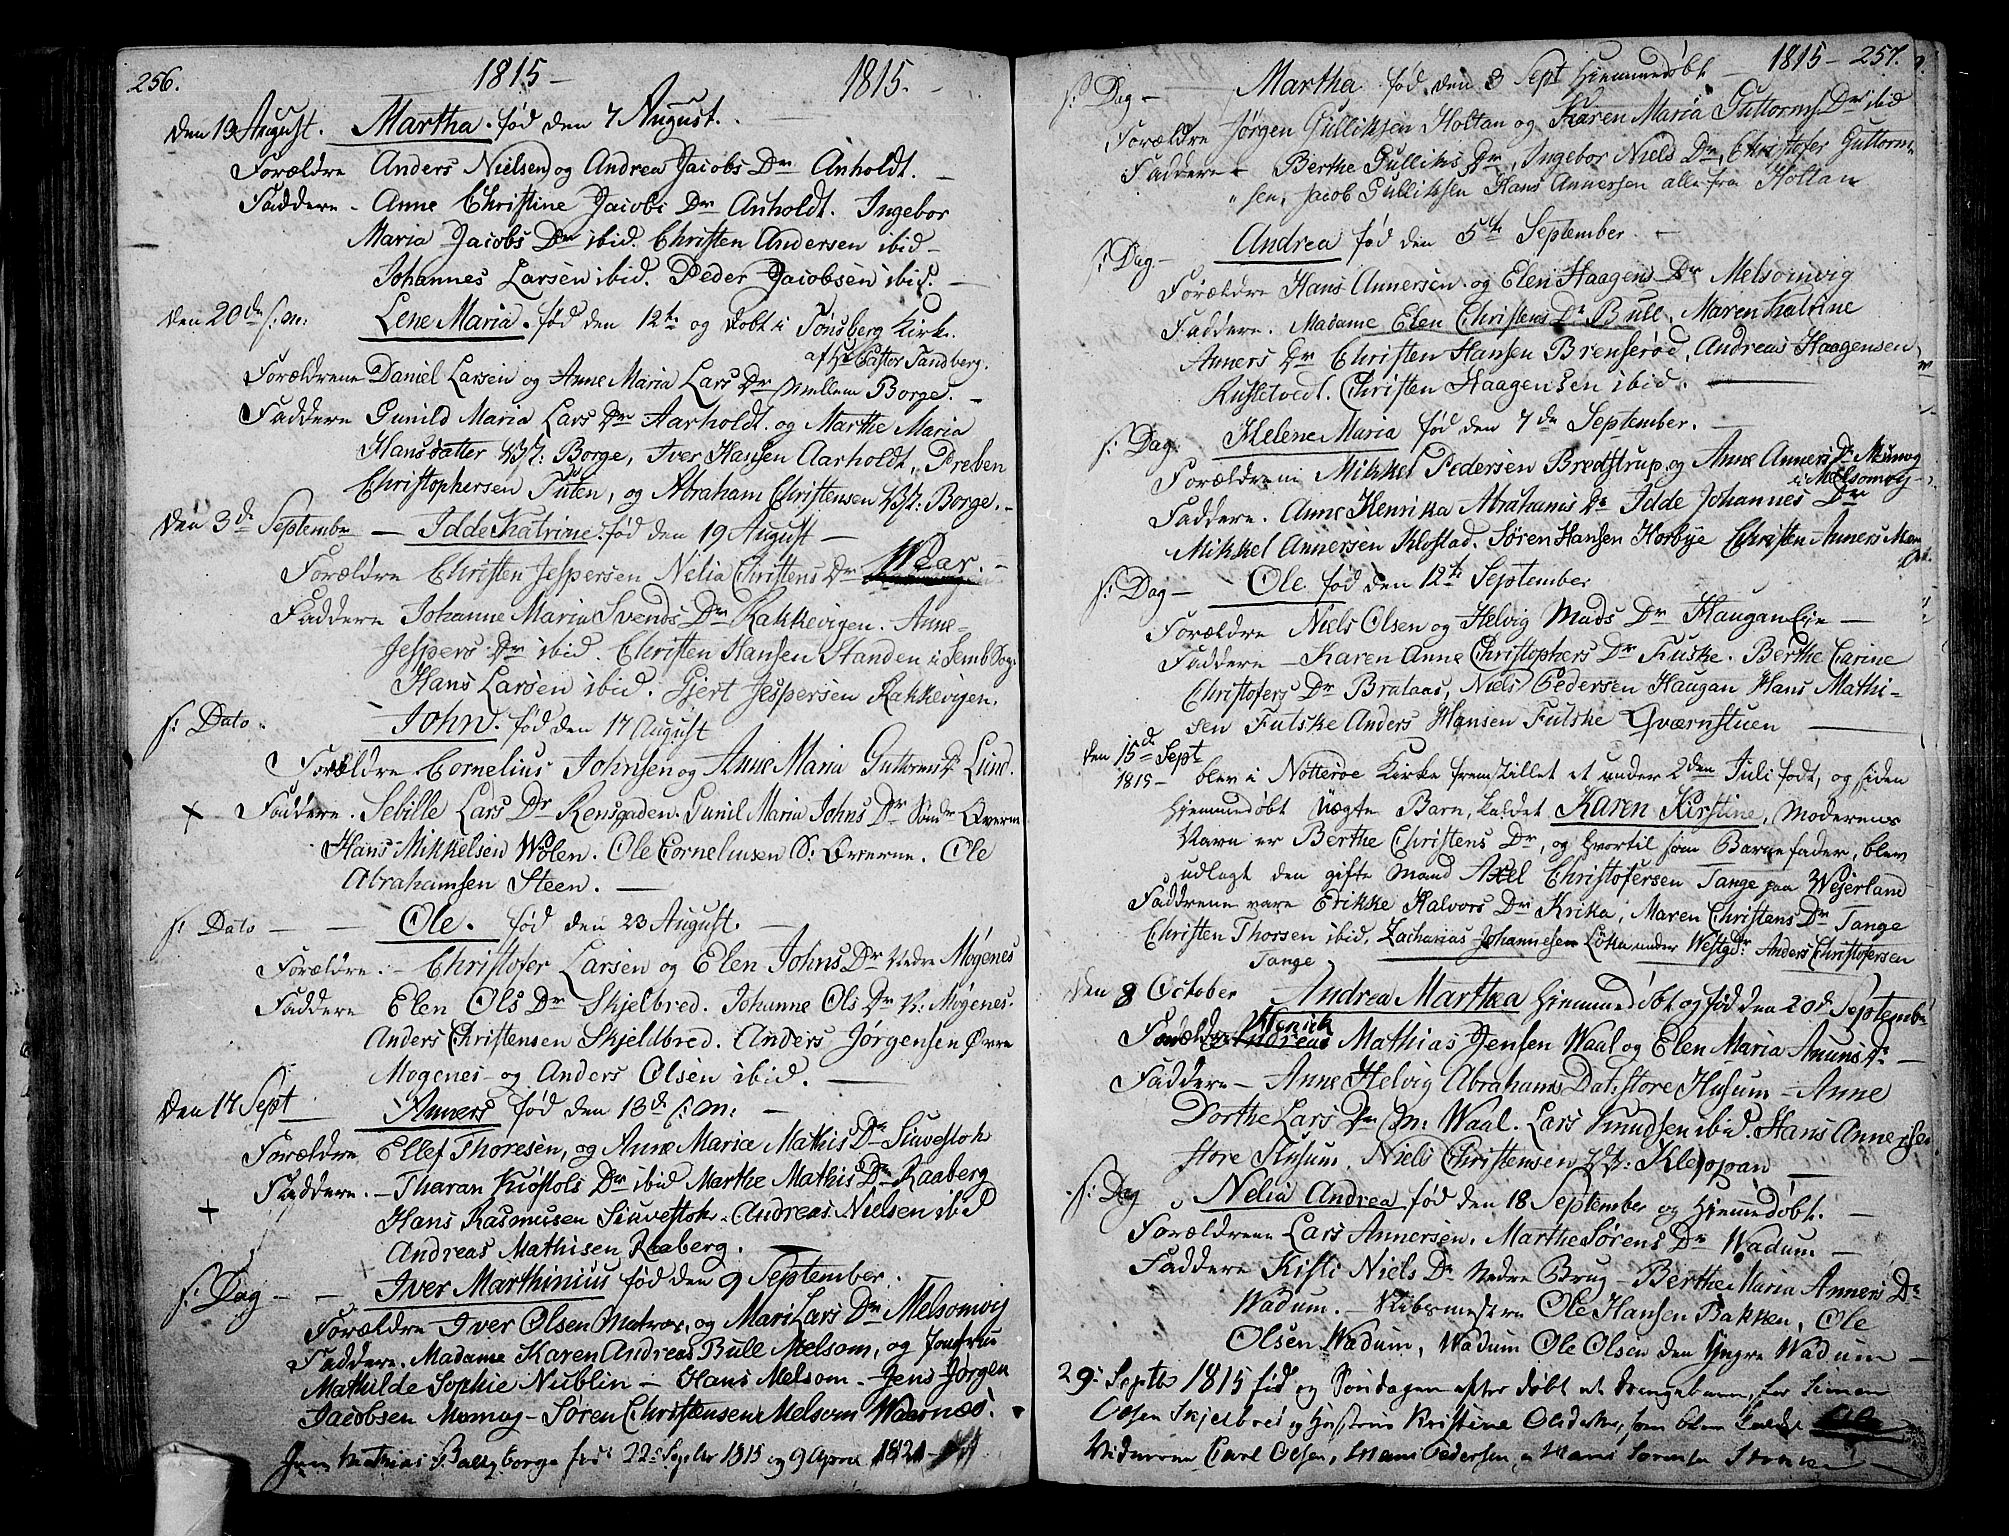 256. 1815 — 1815. -
den 13 August. Martha. fød den 7 August.
Forældre Anders Nielsen og Andrea Jacobs Dr Anholdt. —
Faddere - Anne Christine Jacobs Dr Anholdt. Ingebor
Maria Jacobs Dr ibid. Christen Andersen ibid -
Johannes Larsen ibid. Peder Jacobsen ibid. —
den 20de s: m: Lene Maria. fød den 12te og døbt i Tønsberg Kirke.
af Hr Pastor Sandberg.
Forældrene Daniel Larsen og Anne Maria Lars Dr Mellem Borge. -
Faddere Gunild Maria Lars Dr Aarholdt. og Marthe Maria
Hansdatter Borge, Iver Hansen Aarholdt, Preben
Christophersen Puten, og Abraham Christensen Borge. -
den 3de September — Idde Katrine. fød den 19 August —
Forældre Christen Jespersen Nelia Christens Dr Wear. -
Faddere Johanne Maria Svends Dr Rakkevigen. Anne
Jespers Dr ibid. Christen Hansen Standen i Semb Sog:
Hans Larsen ibid. Gjert Jespersen Rakkevigen.
s: Dato. John. fød den 17 August
Forældre Cornelius Johnsen og Anne Maria Guttorms Dr Lind.
+ Faddere. Sebille Lars Dr Rensgaden. Gunil Maria Johns Dr Søndr Qverne
Hans Mikkelsen Wølen. Ole Corneliusen S: Qverne. Ole
Abrahamsen Steen. —
s: Dato — — Ole. fød den 23 August. —
Forældre. - Christofer Larsen og Elen Johns Dr Nedre Mogenes
Faddere Elen Ols Dr Skjelbred. Johanne Ols Dr N: Mogenes.
Anders Christensen Skjeldbred. Anders Jørgensen Øvre
Mogenes - og Anders Olsen ibid. —
den 17 Sept Anners fød den 13de s: m: —
Forældre Ellef Thoresen, og Anne Maria Mathis Dr Siuvestok
+ Faddere. - Tharan Kiøstols Dr ibid Marthe Mathis Dr Raaberg
Hans Rasmusen Siuvestok - Andreas Nielsen ibid
Andreas Mathisen Raaberg.
s: Dag - - Iver Marthinius fød den 9 September.
Forældre Iver Olsen Matros, og Mari Lars Dr Melsomvig
Faddere. Madame Karen Andreas Bull Melsom, og Jomfrue
Mathilde Sophie Nublin — Hans Melsom - Jens Jørgen
Jacobsen - Søren Christensen Melsom Wadernæs.
Jens Mathias Borge fød: 22de Septbr 1815 og 9 April 1821
1815 - 257.
s: Dag — Martha fød den 3 Sept Hjemmedøbt
Forældre Jørgen Gulliksen Holtan og Karen Maria Guttorms Dr ibid
Faddere - Berthe Gulliks Dr, Ingebor Niels Dr, Christofer Guttorm-
" sen, Jacob Gulliksen Hans Annersen alle fra Holtan
s: Dag — Andrea fød den 5te September. —
Forældre Hans Annersen og Elen Haagens Dr Melsomvig
Faddere. Madame Elen Christens Dr Bull, Maren Katrine
Anners Dr Christen Hansen Brenserød, Andreas Haagensen
Rustetvedt. Christen Haagensen ibid. —
s: Dag. Helene Maria fød den 7de September. —
Forældrene Mikkel Pedersen Bredstrup, og Anne Anners Dr
i Melsomvig -
Faddere. Anne Henrika Abrahams Dr Idde Johannes Dr
Mikkel Annersen Klostad. Søren Hansen Horbye Christen Anners
s: Dag — Ole fød den 12te September
Forældre Niels Olsen og Helvig Mads Dr Haugan Eje —
Faddere — Karen Anne Christophers Dr Fuske. Berthe Carine
Christofers Dr Brataas, Niels Pedersen Haugan Hans Mathi-
sen Fulske Anders Hansen Fulske Qværnstuen —
den 15de Sept
1815 - blev i Nøtterøe Kirke fremstillet et under 2den Juli født, og siden
Hjemmedøbt Uægte Barn, kaldet Karen Kirstine, Moderens
Navn er Berthe Christens Dr, og hvortil som Barnefader, blev
udlagt den gifte Mand Axel Christofersen Tange paa Wejerland
Faddrene vare Erikke Halvors Dr Krika, Maren Christens Dr Tange
Christen Thorsen ibid. Zacharias Johannesen Løkke under Westgdr. Anders Christofersen
Tange
den 8 October Andrea Marthea Hjemmedøbt og fød den 20de September
Forældre Henrik Mathias Jensen Waal og Elen Maria Amunds Dr —
Faddere — Anne Helvig Abrahams Dat: store Husum — Anne
Dorthe Lars Dr M: Waal. Lars Knudsen ibid. Hans Annersen
store Husum. Niels Christensen Kleppan —
s: Dag Nelia Andrea, fød den 18 September og Hjemmedøbt. —
Forældrene Lars Annersen. Marthe Sørens Dr Wadum —
Faddere Kisti Niels Dr Nedre Brug — Berthe Maria Anners Dr
Wadum. — Kibsmester Ole Hansen Bakken, Ole
Olsen Wadum, Wadum Ole Olsen den Yngre Wadum —
29: Septb 1815 fød og Søndagen efter døbt et drengebarn, for Simen
Olsen Skjelbred og Hustrue Kristine Olsdatter, som blev kaldet Ole
Vidnerne Carl Olsen, Hans Pedersen, og Hans Sørensen